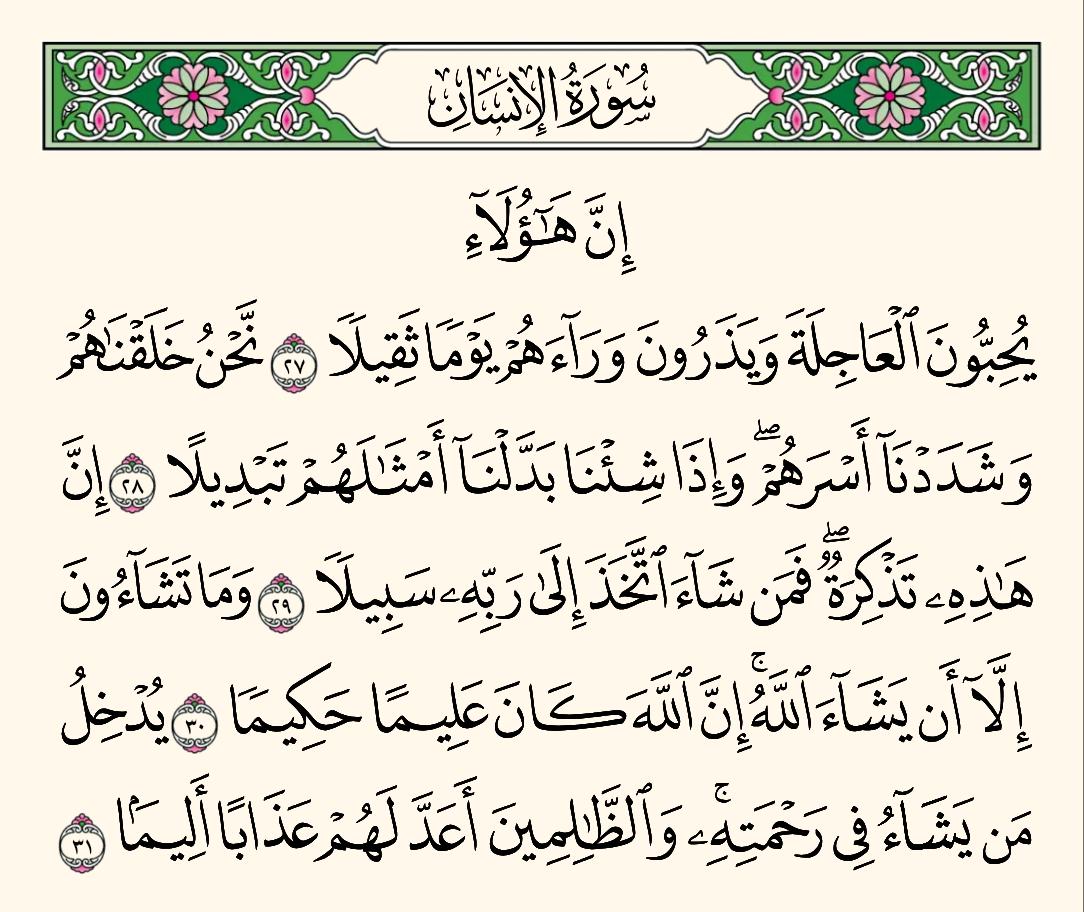 سُورَةُ الإِنسَانِ
إِنَّ هَٰٓؤُلَآءِ
يُحِبُّونَ ٱلۡعَاجِلَةَ وَيَذَرُونَ وَرَآءَهُمۡ يَوۡمٗا ثَقِيلٗا ٢٧ نَّحۡنُ خَلَقۡنَٰهُمۡ
وَشَدَدۡنَآ أَسۡرَهُمۡۖ وَإِذَا شِئۡنَا بَدَّلۡنَآ أَمۡثَٰلَهُمۡ تَبۡدِيلًا ٢٨ إِنَّ
هَٰذِهِۦ تَذۡكِرَةٞۖ فَمَن شَآءَ ٱتَّخَذَ إِلَىٰ رَبِّهِۦ سَبِيلٗا ٢٩ وَمَا تَشَآءُونَ
إِلَّآ أَن يَشَآءَ ٱللَّهُۚ إِنَّ ٱللَّهَ كَانَ عَلِيمًا حَكِيمٗا ٣٠ يُدۡخِلُ
مَن يَشَآءُ فِي رَحۡمَتِهِۦۚ وَٱلظَّٰلِمِينَ أَعَدَّ لَهُمۡ عَذَابًا أَلِيمَۢا ٣١